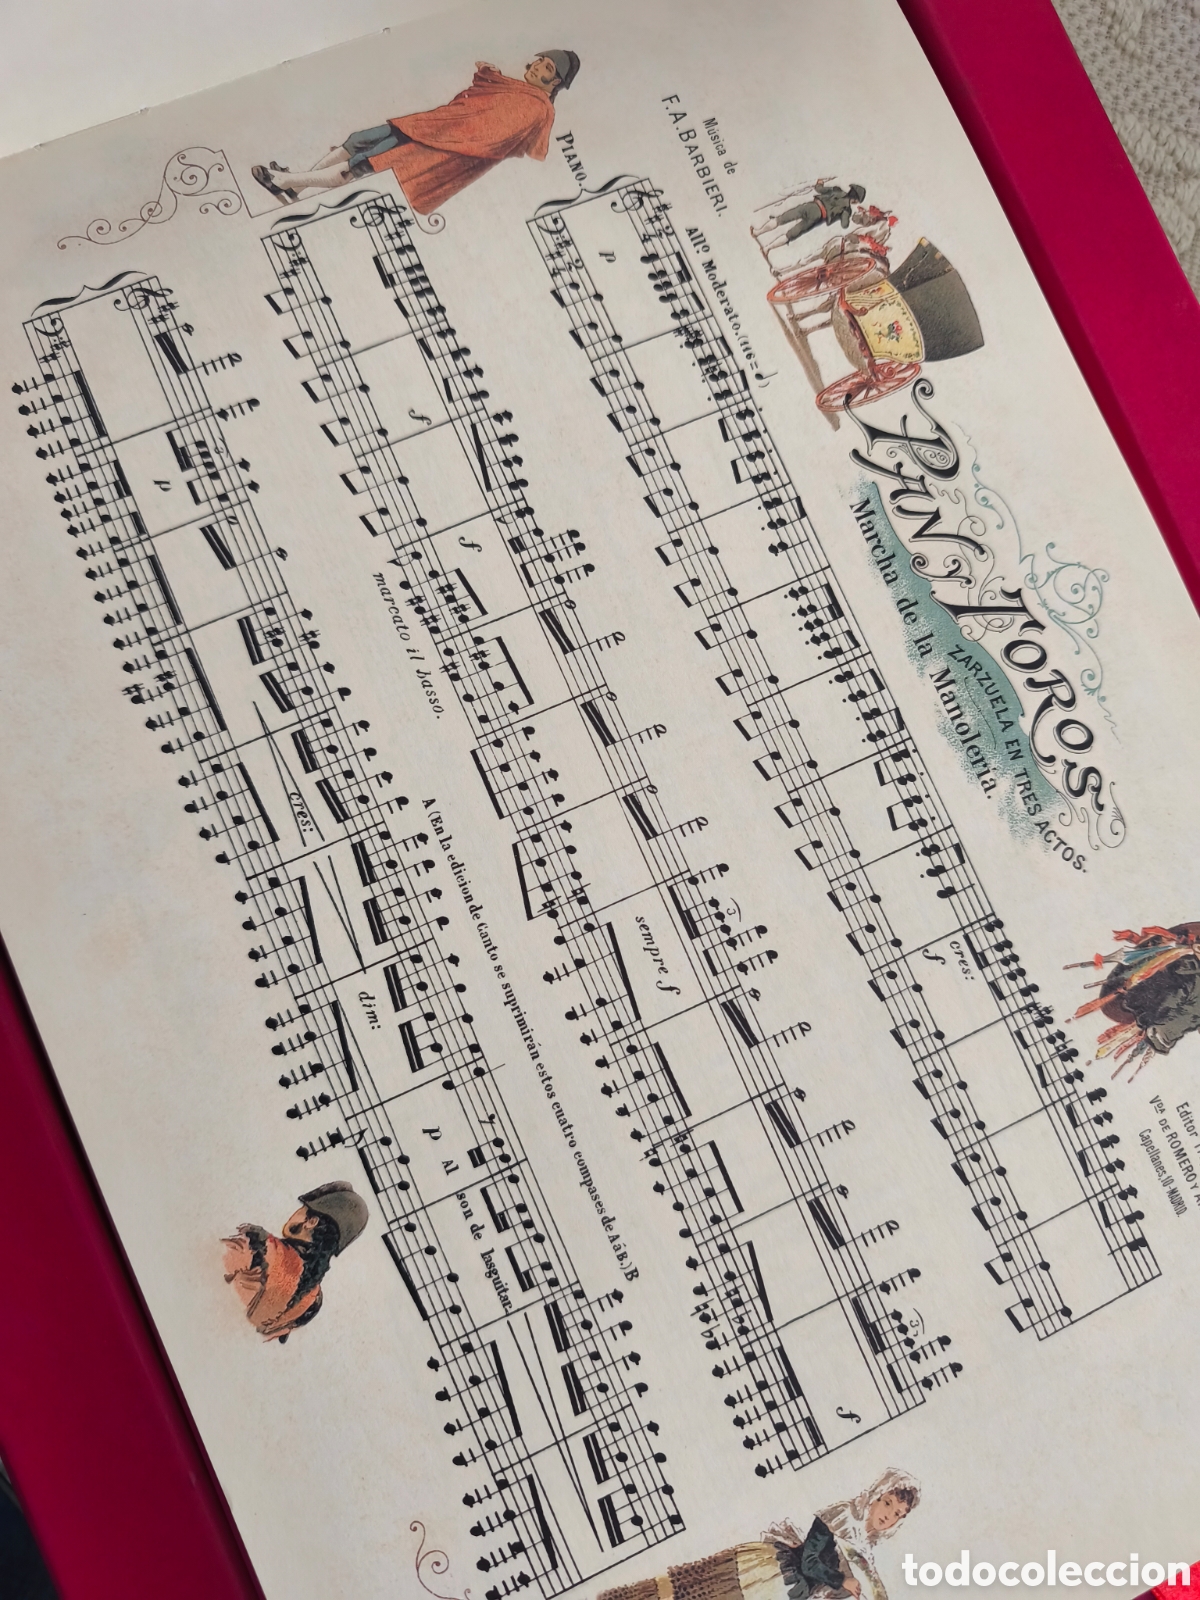 PAN Y TOROS
ZARZUELA EN TRES ACTOS.
Marcha de la Manoleria.
Música de
F. A. BARBIERI.
Editor
Vda DE ROMERO Y
Capellanes, 10-MADRID.
Allº Moderato. (116 = ♩)
PIANO.
p
cres:
f
f
f
sempre f
f
marcato il basso.
A (En la edicion de Canto se suprimirán estos cuatro compases de A á B.) B
3
3
3
p
cres:
dim:
p
Al son de las guitar-
todocoleccion